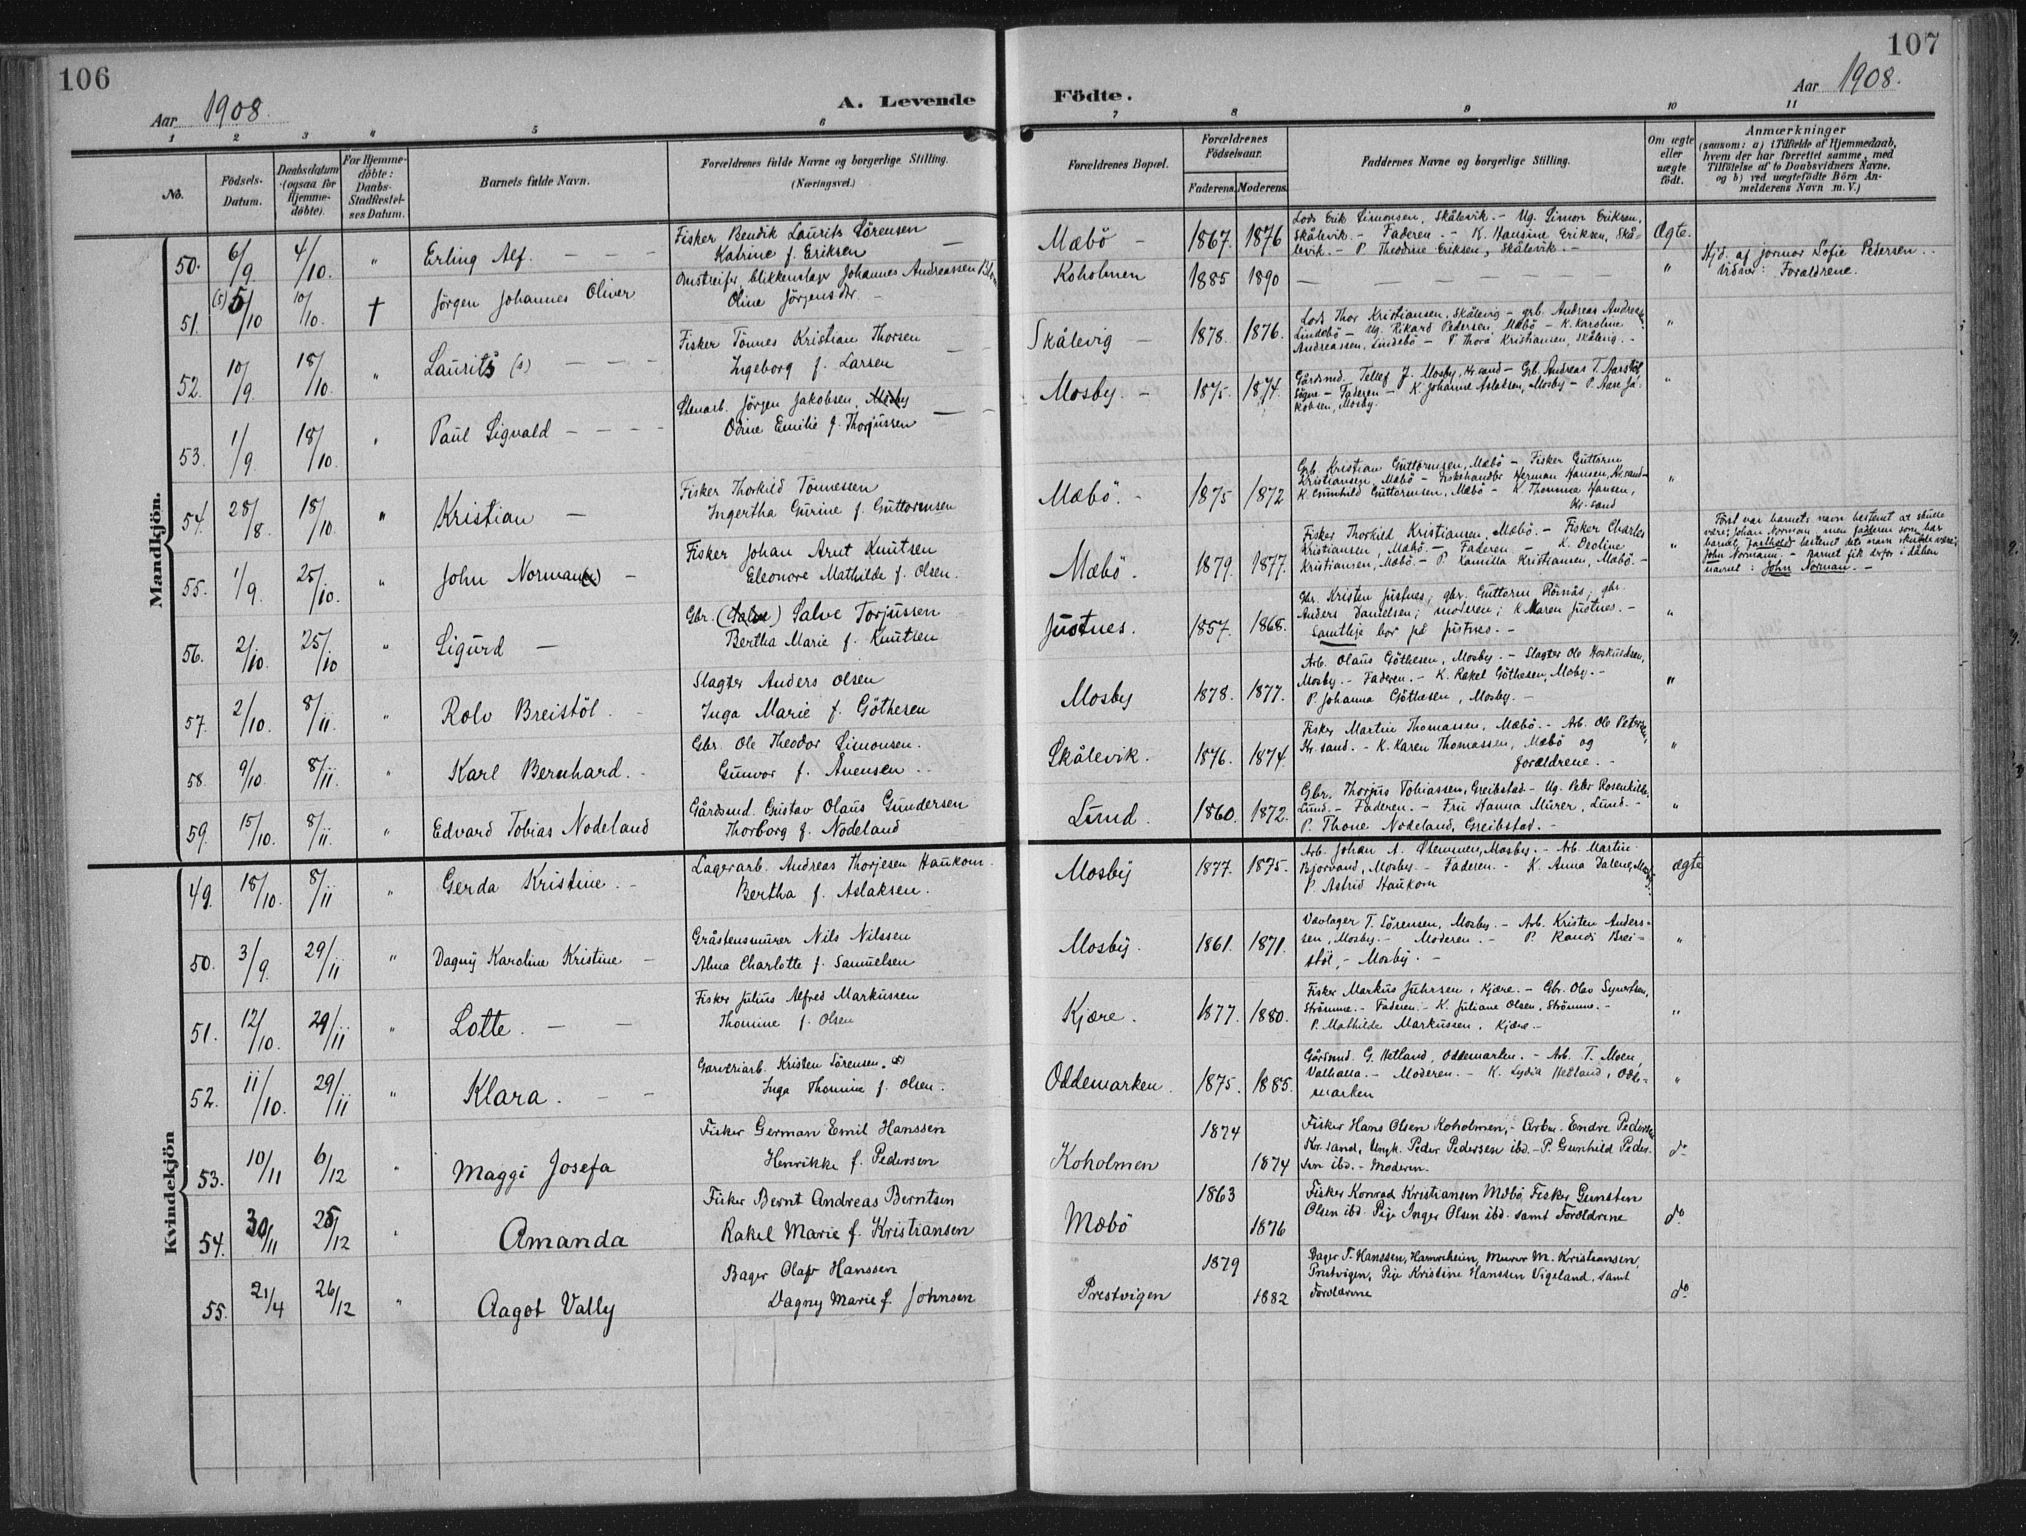 106
Aar 1908.
A. Levende
1 2 3 „ 5 6
No.
Fødsels-
Datum.
Daabsdatum
(ogsaa for
Hjemme-
døbte).
For Hjemme-
døbte:
Daabs-
Stadfæstel-
ses Datum.
Barnets fulde Navn.
Forældrenes fulde Navne og borgerlige Stilling.
(Næringsvei.)
Mandkjön.
50. 6/9 4/10. „ Erling Alf. — — —
Fisker Bendik Laurits Sörensen
Katrine f. Eriksen —
51. (5) 5/10 10/10. † Jörgen Johannes Oliver
Omstreifer, blikkenslager Johannes Andreassen
Oline Jörgensdtr. —
52. 10/9. 18/10. „ Laurits (s) — — —
Fisker Tönnes Kristian Thorsen
Ingeborg f. Larsen —
53. 1/9. 18/10. „ Paul Sigvald — — — —
Stenarb. Jörgen Jakobsen, Mosby
Odine Emilie f. Thorjussen —
54. 28/8. 18/10. „ Kristian —
Fisker Thorkild Tönnessen
Ingertha Gurine f. Guttormsen
55. 1/9. 25/10. John Norman —
Fisker Johan Arnt Knutsen
Eleonore Mathilde f. Olsen.
56. 2/10. 25/10 „ Sigurd —
Gbr. Salve Torjussen
Bertha Marie f. Knutsen
57. 2/10. 8/11. „ Rolv Breistöl. -
Slagter Anders Olsen
Inga Marie f. Göthesen
58. 9/10. 8/11. „ Karl Bernhard. -
Gbr. Ole Theodor Simonsen.
Gunvor f. Ävensen
59. 15/10. 8/11. „ Edvard Tobias Nodeland
Gårdsmd. Gustav Olaus Gundersen
Thorborg f. Nodeland
Kvindekjön
49. 18/10. 8/11 „ Gerda Kristine. -
Lagerarb. Andreas Thorjesen Haukom.
Bertha f. Aslaksen.
50. 3/9. 29/11 „ Dagny Karoline Kristine —
Gråstensmurer Nils Nilssen
Alma Charlotte f. Samuelsen
51. 12/10. 29/11 „ Lotte. — —
Fisker Julius Alfred Markussen
Thomine f. Olsen
52. 11/10. 29/11 „ Klara. — —
Garveriarb. Kristen Sörensen. (s)
Inga Thomine f. Olsen.
53. 10/11 6/12 „ Maggi Josefa
Fisker German Emil Hanssen
Henrikke f. Pedersen
54. 30/11 25/12 „ Amanda
Fisker Bernt Andreas Berntsen
Rakel Marie f. Kristiansen
55. 21/4 26/12 „ Aagot Vally
Bager Olaf Hanssen
Dagny Marie f. Johnsen
107
Födte.
Aar 1908.
7 8 9 10 11
Forældrenes Bopæl.
Forældrenes
Födselsaar.
Faderens. Moderens.
Faddernes Navne og borgerlige Stilling.
Om ægte
eller
uægte
født.
Anmærkninger
(saasom: a) i Tilfælde af Hjemmedaab,
hvem der har forrettet samme, med
Tilföielse af to Daabsvidners Navne.
og b) ved uægtefödte Börn An-
melderens Navn m. V.)
Mæbö — 1867. 1876
Lods Erik Simonsen, Skålevik. — Ug. Simon Eriksen,
Skålevik. — Faderen. — K. Hansine Eriksen, Skå-
levik. — P. Theodine Eriksen, Skålevik. —
Ægte.
Koholmen 1885 1890 — — — — — „
Hjd. af jormor Sofie Pedersen.
Vidner: Forældrene.
Skålevig — 1878. 1876.
Lods Thor Kristiansen, Skålevig — grb. Andreas Andreassen
Lindebö — Ug. Rikard Pedersen, Mæbö — K. Karoline
Andreassen, Lindebö — P. Thora Kristiansen, Skålevig. — „
Mosby. — 1875. 1874.
Gårdsmd. Tellef J. Mosby, Kr.sand — Grb. Andreas T. Aarstöl,
Sögne — Faderen — K. Johanne Aslaksen, Mosby — P. Aase Ja-
kobsen, Mosby. „
Mæbö. — 1875 1872
Grb. Kristian Guttormsen, Mæbö — Fisker Guttorm
Kristiansen, Mæbö — Fiskehandler Herman Hansen, Kr.sand —
K. Gunhild Guttormsen, Mæbö — K. Thomine Hansen,
Kr.sand „
Mæbö. 1879. 1877.
Fisker Thorkild Kristiansen, Mæbö. — Fisker Charles
Kristiansen, Mæbö. — Faderen — K. Deoline
Kristiansen, Mæbö. — P. Kamilla Kristiansen, Mæbö. — „
Först var barnets navn bestemt at skulle
være: Johan Norman, men faderen som bar
barnet, bestemt dets navn skulde være:
John Normann. — Barnet fik drfor i dåben
navnet: John Norman. —
Justnes. 1857. 1868.
Gbr. Kristen Justnes; gbr. Guttorm Rönås; gbr.
Anders Danielsen; moderen; K. Maren Justnes. —
Samtlige bor på Justnes. — „
Mosby 1878. 1877.
Arb. Olaus Göthesen, Mosby. — Slagter Ole Hoskuldsen,
Mosby. — Faderen. — K. Rakel Göthesen, Mosby. —
P. Johanna Göthesen, Mosby. — „
Skålevik. 1876. 1874
Fisker Martin Thomassen, Mæbö. — Arb. Ole Petersen,
Kr.sand. — K. Karen Thomassen, Mæbö og
forældrene. — „
Lund. 1860. 1872.
Gbr. Thorjus Tobiassen, Greibstad — Ug. Peter Rosenkilde,
Lund. — Faderen. — Fru Hanna Murer, Lund. —
P. Thone Nodeland, Greibstad. — „
Mosby 1877. 1875.
Arb. Johan A. Stemmen, Mosby. — Arb. Martin
Bjorvand, Mosby. — Faderen. — K. Anna Dalene, Mosby.
P. Astrid Haukom
ægte
Mosby. 1861. 1871.
Vævlager T. Sörensen, Mosby. — Arb. Kristen Anders-
sen, Mosby. — Moderen. — P. Randi Brei-
stöl, — Mosby. — „
Kjære. 1877. 1880.
Fisker Markus Juhrsen, Kjære. — Gbr. Olav Syvertsen,
Strömme. — Faderen. — K. Juliane Olsen, Strömme. —
P. Mathilde Markussen, Kjære. — „
Oddemarken. 1875. 1885.
Gårdsmd. G. Hetland, Oddemarken. — Arb. T. Moen,
Valhalla. — Moderen. — K. Lydia Hetland, Odde-
marken „
Koholmen 1874 1874
Fisker Hans Olsen Koholmen, — Arbm. Endre Pedersen
Kr.sand, Ungk. Peder Pedersen ibd. — P. Gunhild Peder-
sen ibd. — Moderen. do
Mæbö 1863 1876
Fisker Konrad Kristiansen Mæbö, Fisker Gunsten
Olsen ibd. Pige Inger Olsen ibd. samt Forældrene do
Prestvigen 1879 1882
Bager T. Hanssen, Hamreheien, Murer M. Kristiansen,
Prestvigen, Pige Kristine Hanssen Vigeland, samt
Forældrene do